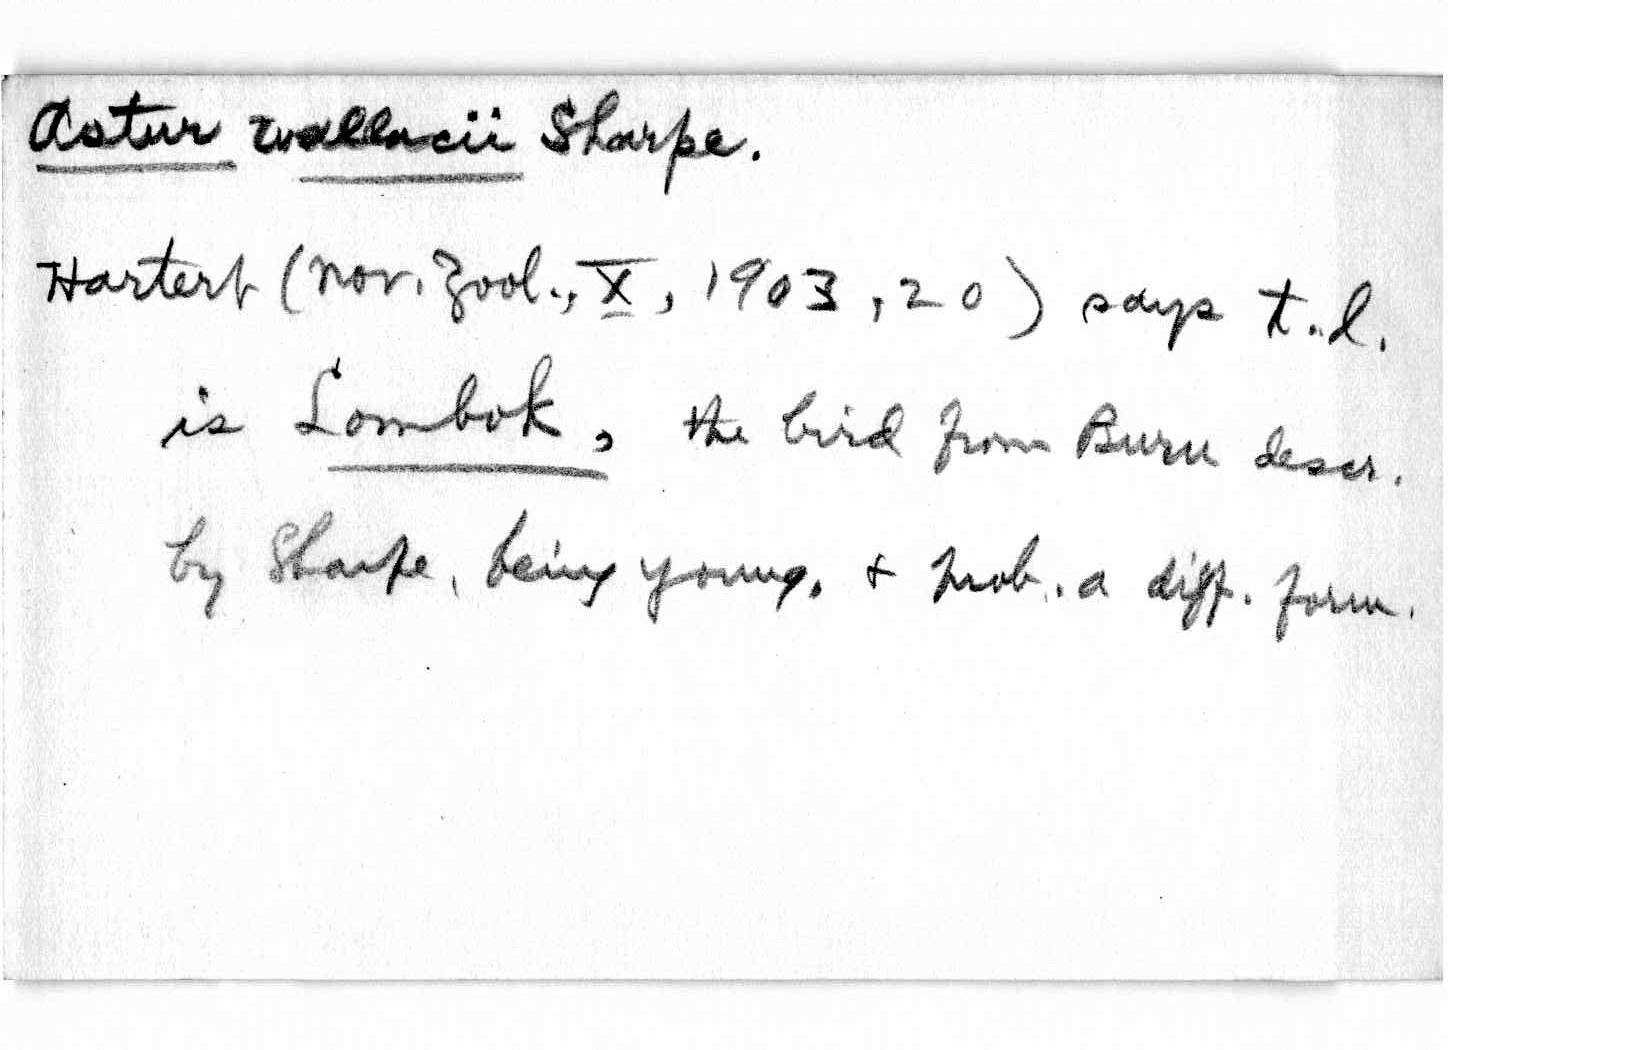 Astur wallacii Sharpe.
Hartert (Nov. Zool., X, 1903, 20) says t.l.
is Lombok, the bird from Buru descr.
by Sharpe, being young, & prob. a diff. form.